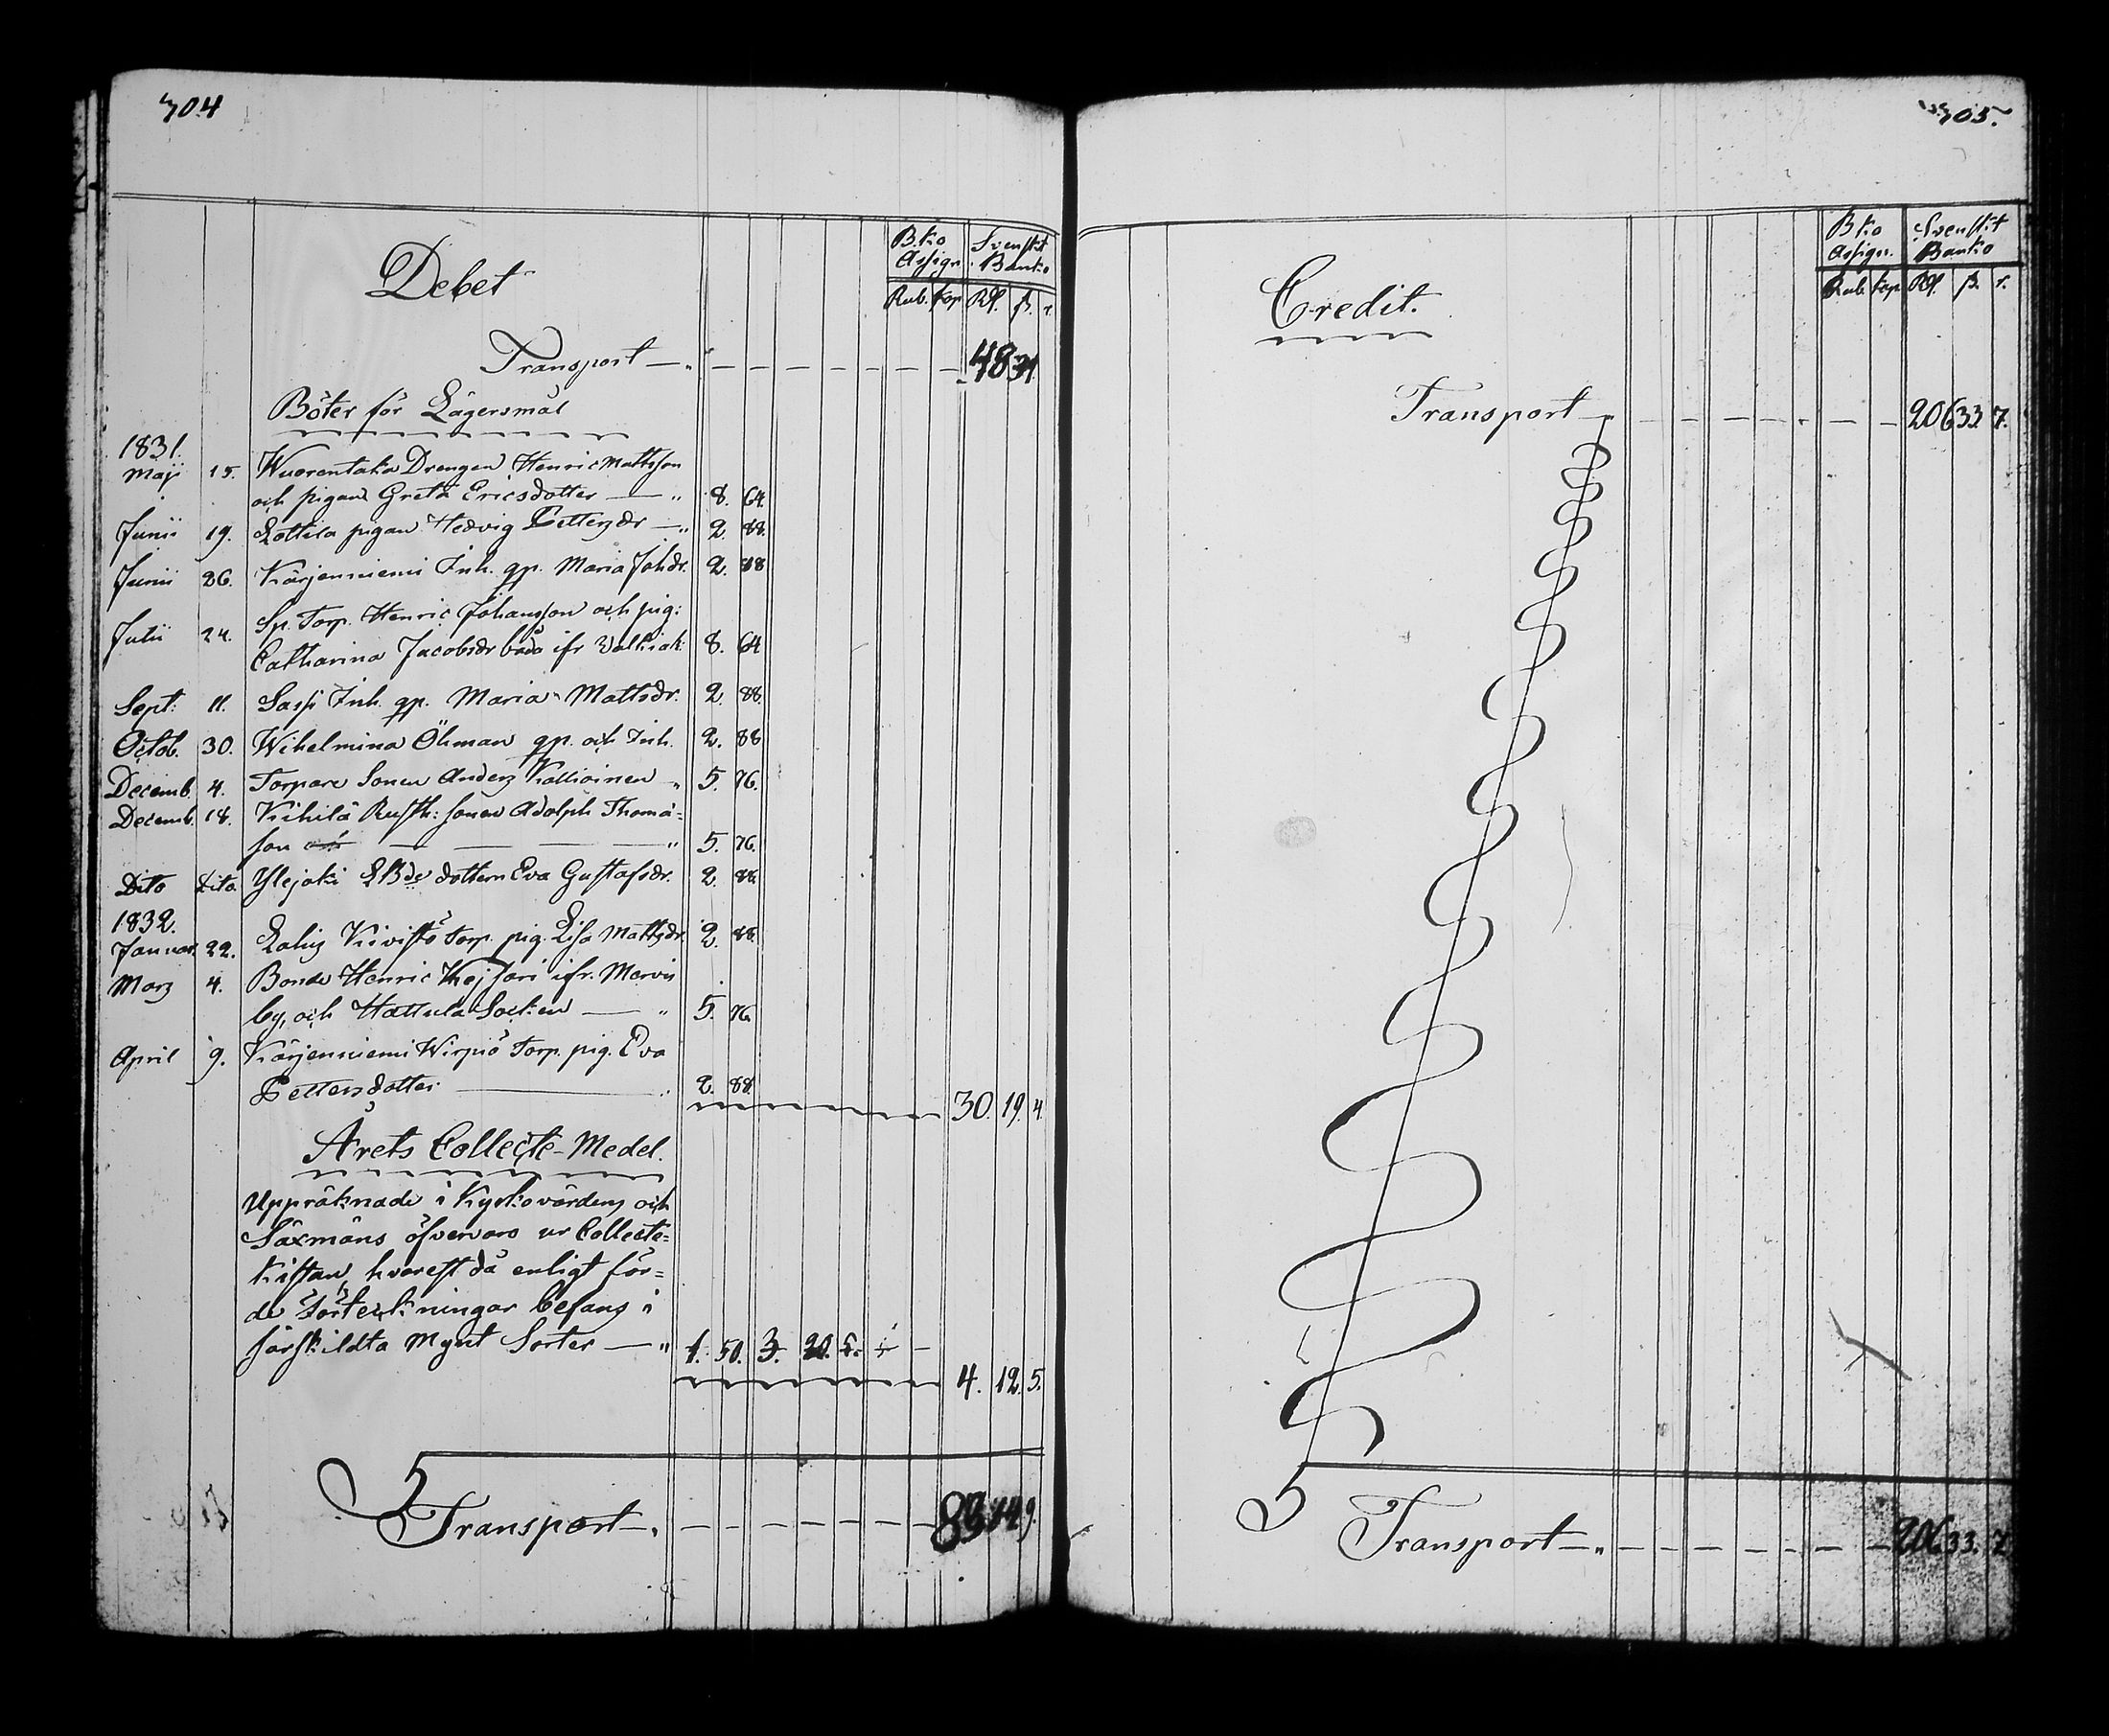 304
Debet
B:ko Assign. Svenskt Banko
Rub. kop Rd. ß. r.
Transport — „ — — — — — — — 48 31
Böter för Lägersmål
1831.
Maji 15. Wuorentaka Drengen Henric Mattsson
och pigan Greta Ericsdotter — „ 8. 64.
Junii 19. Lottila pigan Hedvig Pettersdr — „ 2. 88.
Junii 26. Kärjenniemi Inh. qp. Maria Johdr. 2. 88
Julii 24. Sp. Torp. Henric Johansson och pig:
Catharina Jacobsdr båda ifr Walkiak: 8. 64
Sept: 11. Sassi Inh. qp. Maria Mattsdr. 2. 88.
Octob. 30. Wihelmina Öhman qp. och Inh. 2. 88
Decemb. 4. Torpare Sonen Anders Kallioinen „ 5. 76.
Decemb. 18. Kihilä Rusth: sonen Adolph Thoma=
son — — — — „ 5. 76.
Dito Dito Ylejoki dottern Eva Gustafsdr. 2. 88.
1832.
Januar. 22. Kivistö Torp. pig. Lisa Mattsdr 2. 88.
Mars 4. Bonde Henric ifr. Mervis
by, och Hattula Socken — „ 5. 76.
April 9. Kärjenniemi Wirpiö Torp. pig. Eva
Pettersdotter — 2. 88.
30. 19. 4.
Årets Collecte-Medel.
Uppräknade i Kyrkovärdens och
Säxmäns öfvervaro ur Collecte=
Kistan, hvarest då enligt för=
de Förteckningar befans i
särskildta Mynt Sorter — „ 1. 50. 3. 20.
4. 12. 5.
Transport — „ — — — — — — — 83. 14. 9.
305.
Credit.
B:ko Assign. Svenskt Banko
Rub. kop Rd. ß. r.
Transport — „ — — — — — — 206 33. 7.
Transport — „ — — — — — — — 206. 33. 7